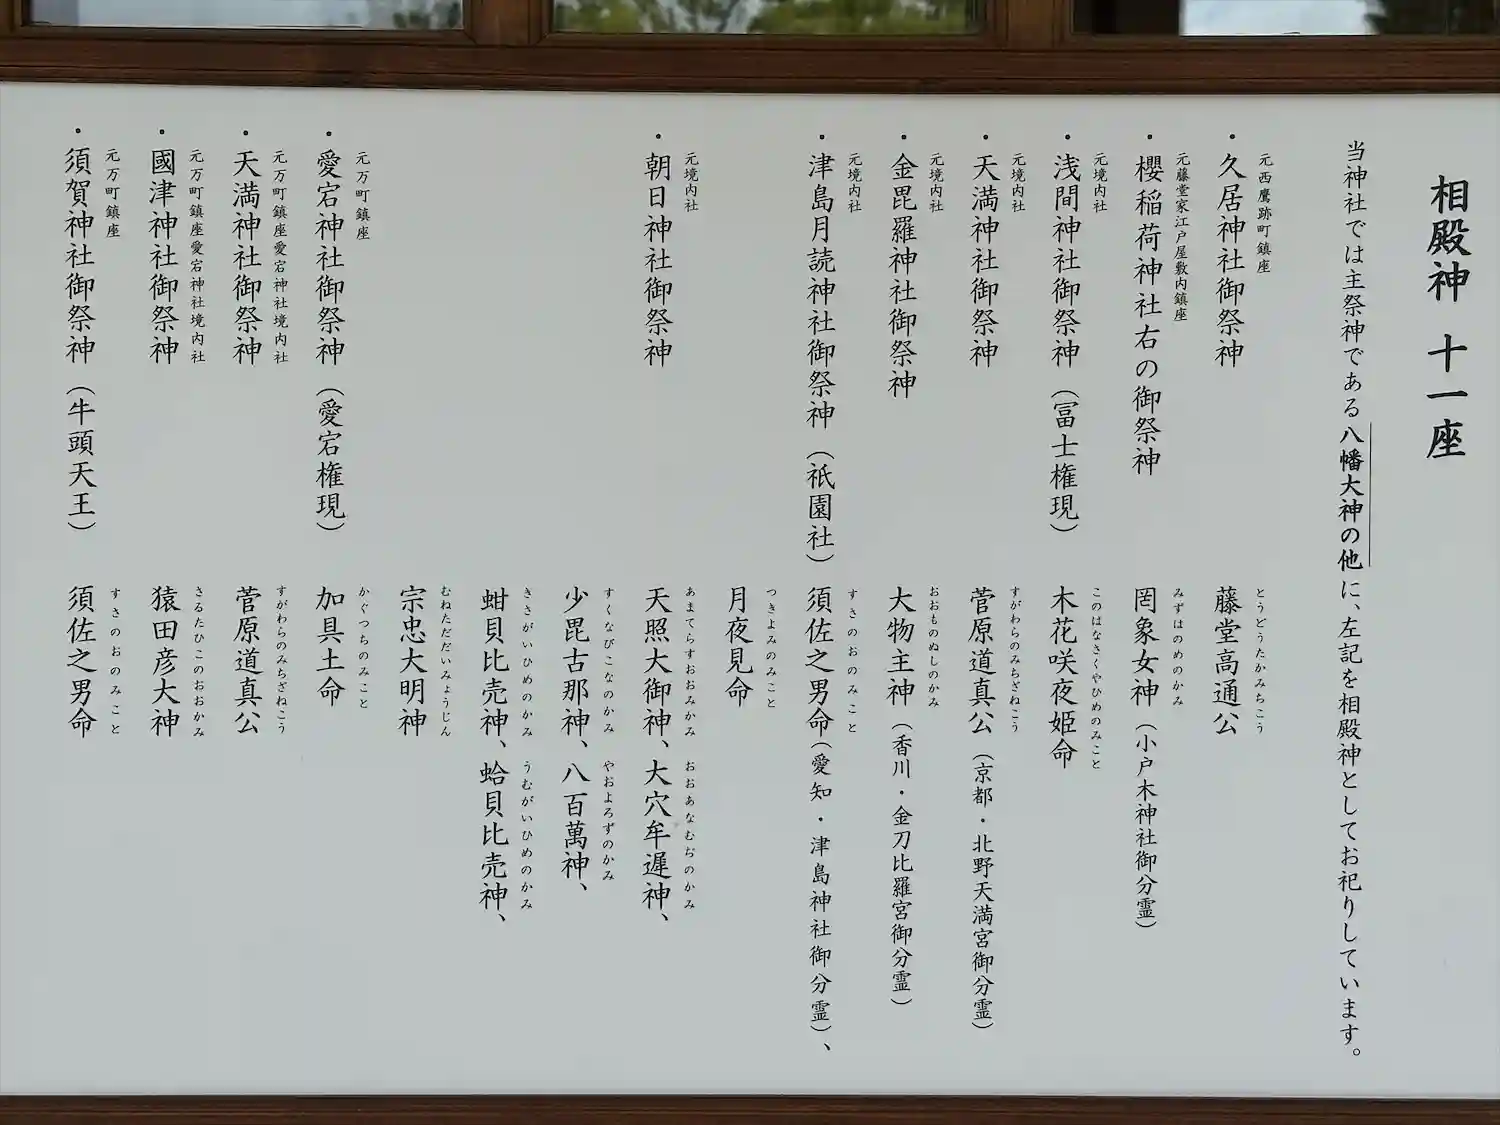 相殿神 十一座
当神社では主祭神である八幡大神の他に、左記を相殿神としてお祀りしています。
元西鷹跡町鎮座
・久居神社御祭神
とうどうたかみちこう
藤堂高通公
元藤堂家江戸屋敷内鎮座
・櫻稲荷神社右の御祭神
みずはのめのかみ
罔象女神（小戸木神社御分霊）
元境内社
・浅間神社御祭神（冨士権現）
このはなさくやひめのみこと
木花咲夜姫命
元境内社
・天満神社御祭神
すがわらのみちざねこう
菅原道真公（京都・北野天満宮御分霊）
元境内社
・金毘羅神社御祭神
おおものぬしのかみ
大物主神（香川・金刀比羅宮御分霊）
元境内社
・津島月読神社御祭神（祇園社）
すさのおのみこと
須佐之男命（愛知・津島神社御分霊）、
つきよみのみこと
月夜見命
元境内社
・朝日神社御祭神
あまてらすおおみかみ おおあなむぢのかみ
天照大御神、大穴牟遅神、
すくなびこなのかみ やおよろずのかみ
少毘古那神、八百萬神、
きさがいひめのかみ うむがいひめのかみ
蚶貝比売神、蛤貝比売神、
むねただだいみょうじん
宗忠大明神
元万町鎮座
・愛宕神社御祭神（愛宕権現）
かぐつちのみこと
加具土命
元万町鎮座愛宕神社境内社
・天満神社御祭神
すがわらのみちざねこう
菅原道真公
元万町鎮座愛宕神社境内社
・國津神社御祭神
さるたひこのおおかみ
猿田彦大神
元万町鎮座
・須賀神社御祭神（牛頭天王）
すさのおのみこと
須佐之男命